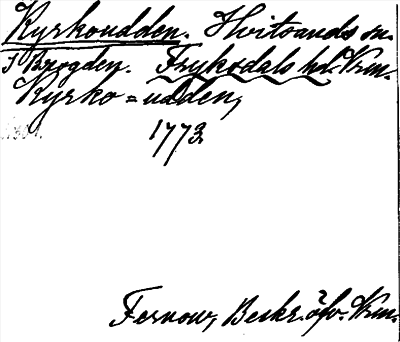 Kyrkoudden. Hvitsands sn.
I Brogden. Frykdals hd. Vrm.
Kyrko=udden,
1773
Fernow, Beskr. öfv. Vrm.